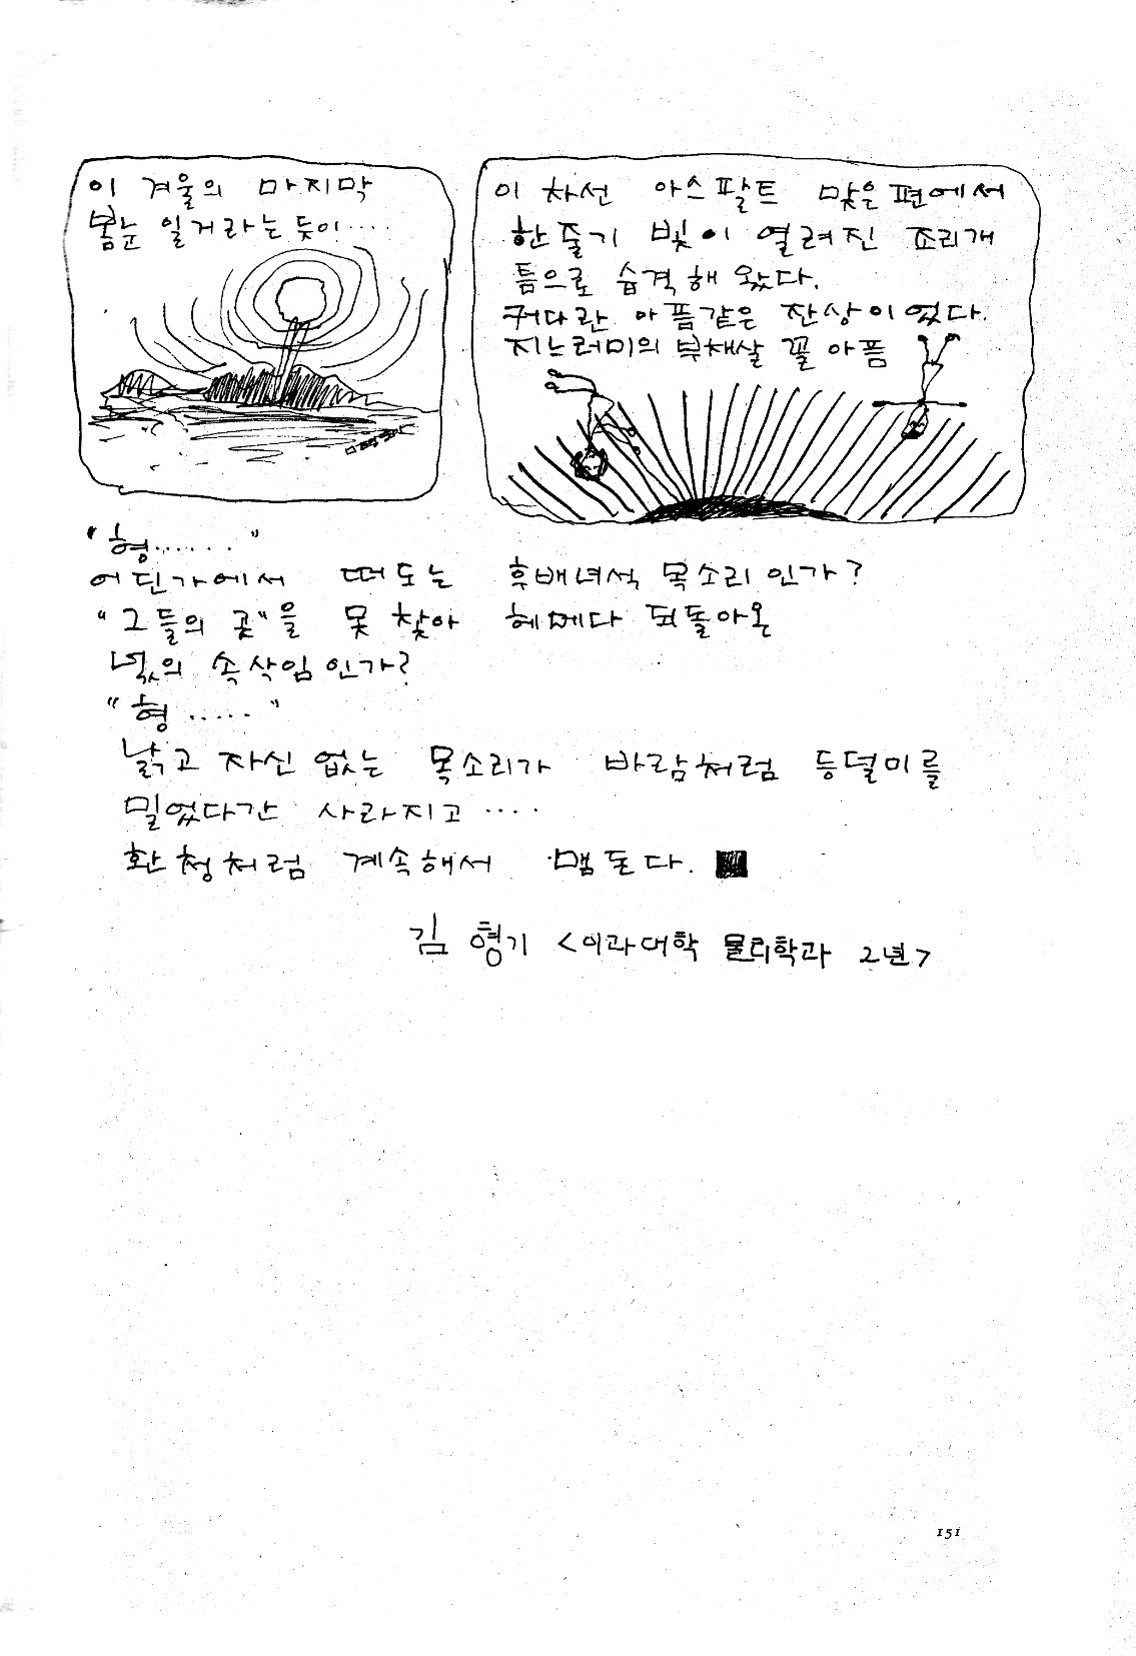 이 겨울의 마지막
봄눈 일거라는 듯이....
이 차선 아스팔트 맞은 편에서
한줄기 빛이 열려진 조리개
틈으로 습격해 왔다.
커다란 아픔같은 잔상이었다.
지느러미의 부채살 꼴 아픔
"형......"
어딘가에서 떠도는 후배녀석 목소리인가?
"그들의 곳"을 못 찾아 헤메다 되돌아온
넋의 속삭임인가?
"형....."
낡고 자신 없는 목소리가 바람처럼 등덜미를
밀었다간 사라지고....
환청처럼 계속해서 맴돈다.
김형기 <이과대학 물리학과 2년>
151